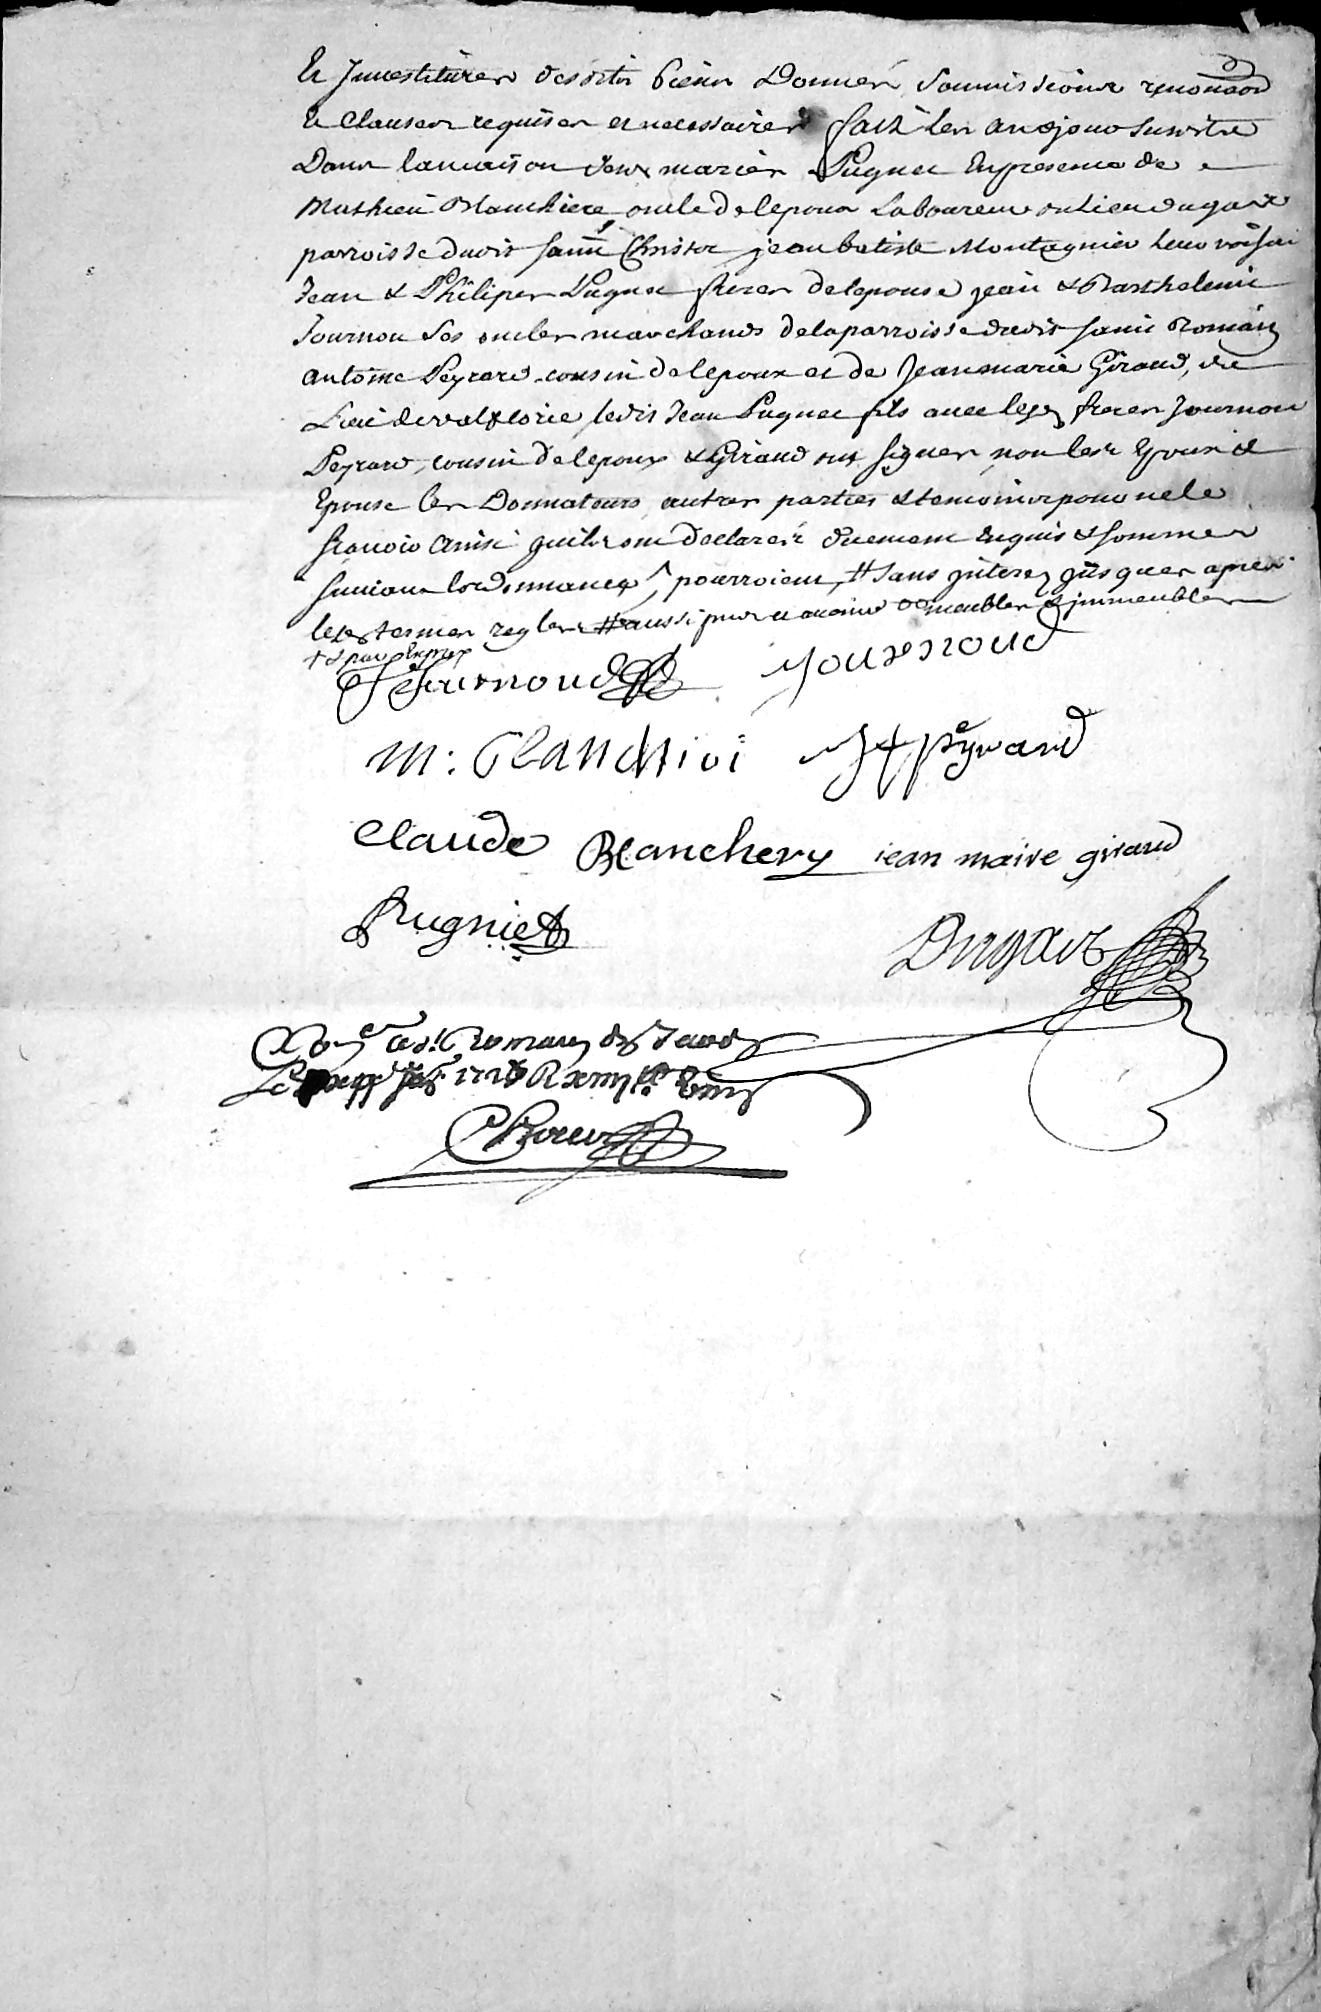 Et Investitures desdits biens Donnés, soumissions renonçõns
et Clauses requises et necessaires fait les an et jour susdits
Dans la maison des mariés Pugnet En presence de
Mathieu Blanchiere oncle de lepoux Laboureur du Lieu du garit
parroisse dudit saint Christo jean batiste Montagnier leur voisin
Jean & Philipes Pugnet freres de lepouse jean & Barthelemie
Journou ses oncles marchands de la parroisse dudit saint Romain
antoine Peyrard cousin de lepoux et de Jean marie Giraud, du
Lieu de valfloric ledit Jean Pugnet fils avec lesd freres Journou
Peyrard, cousin de lepoux & Giraud ont signes, non lesd Epoux &
Epouse les Donnateurs autres parties & temoins pour ne le
sçavoir ainsi quils ont declarés duement Enquis & sommes
suivant lordonnance, pourroient, # sans interets jusques apres
lesd termes regles # aussi meubles & immeubles
+ & par Exprex
J Journoud Journoud
M: Blanchiei Peyrard
Claude Blanchery iean marie giraud
Pugniet
Dugas